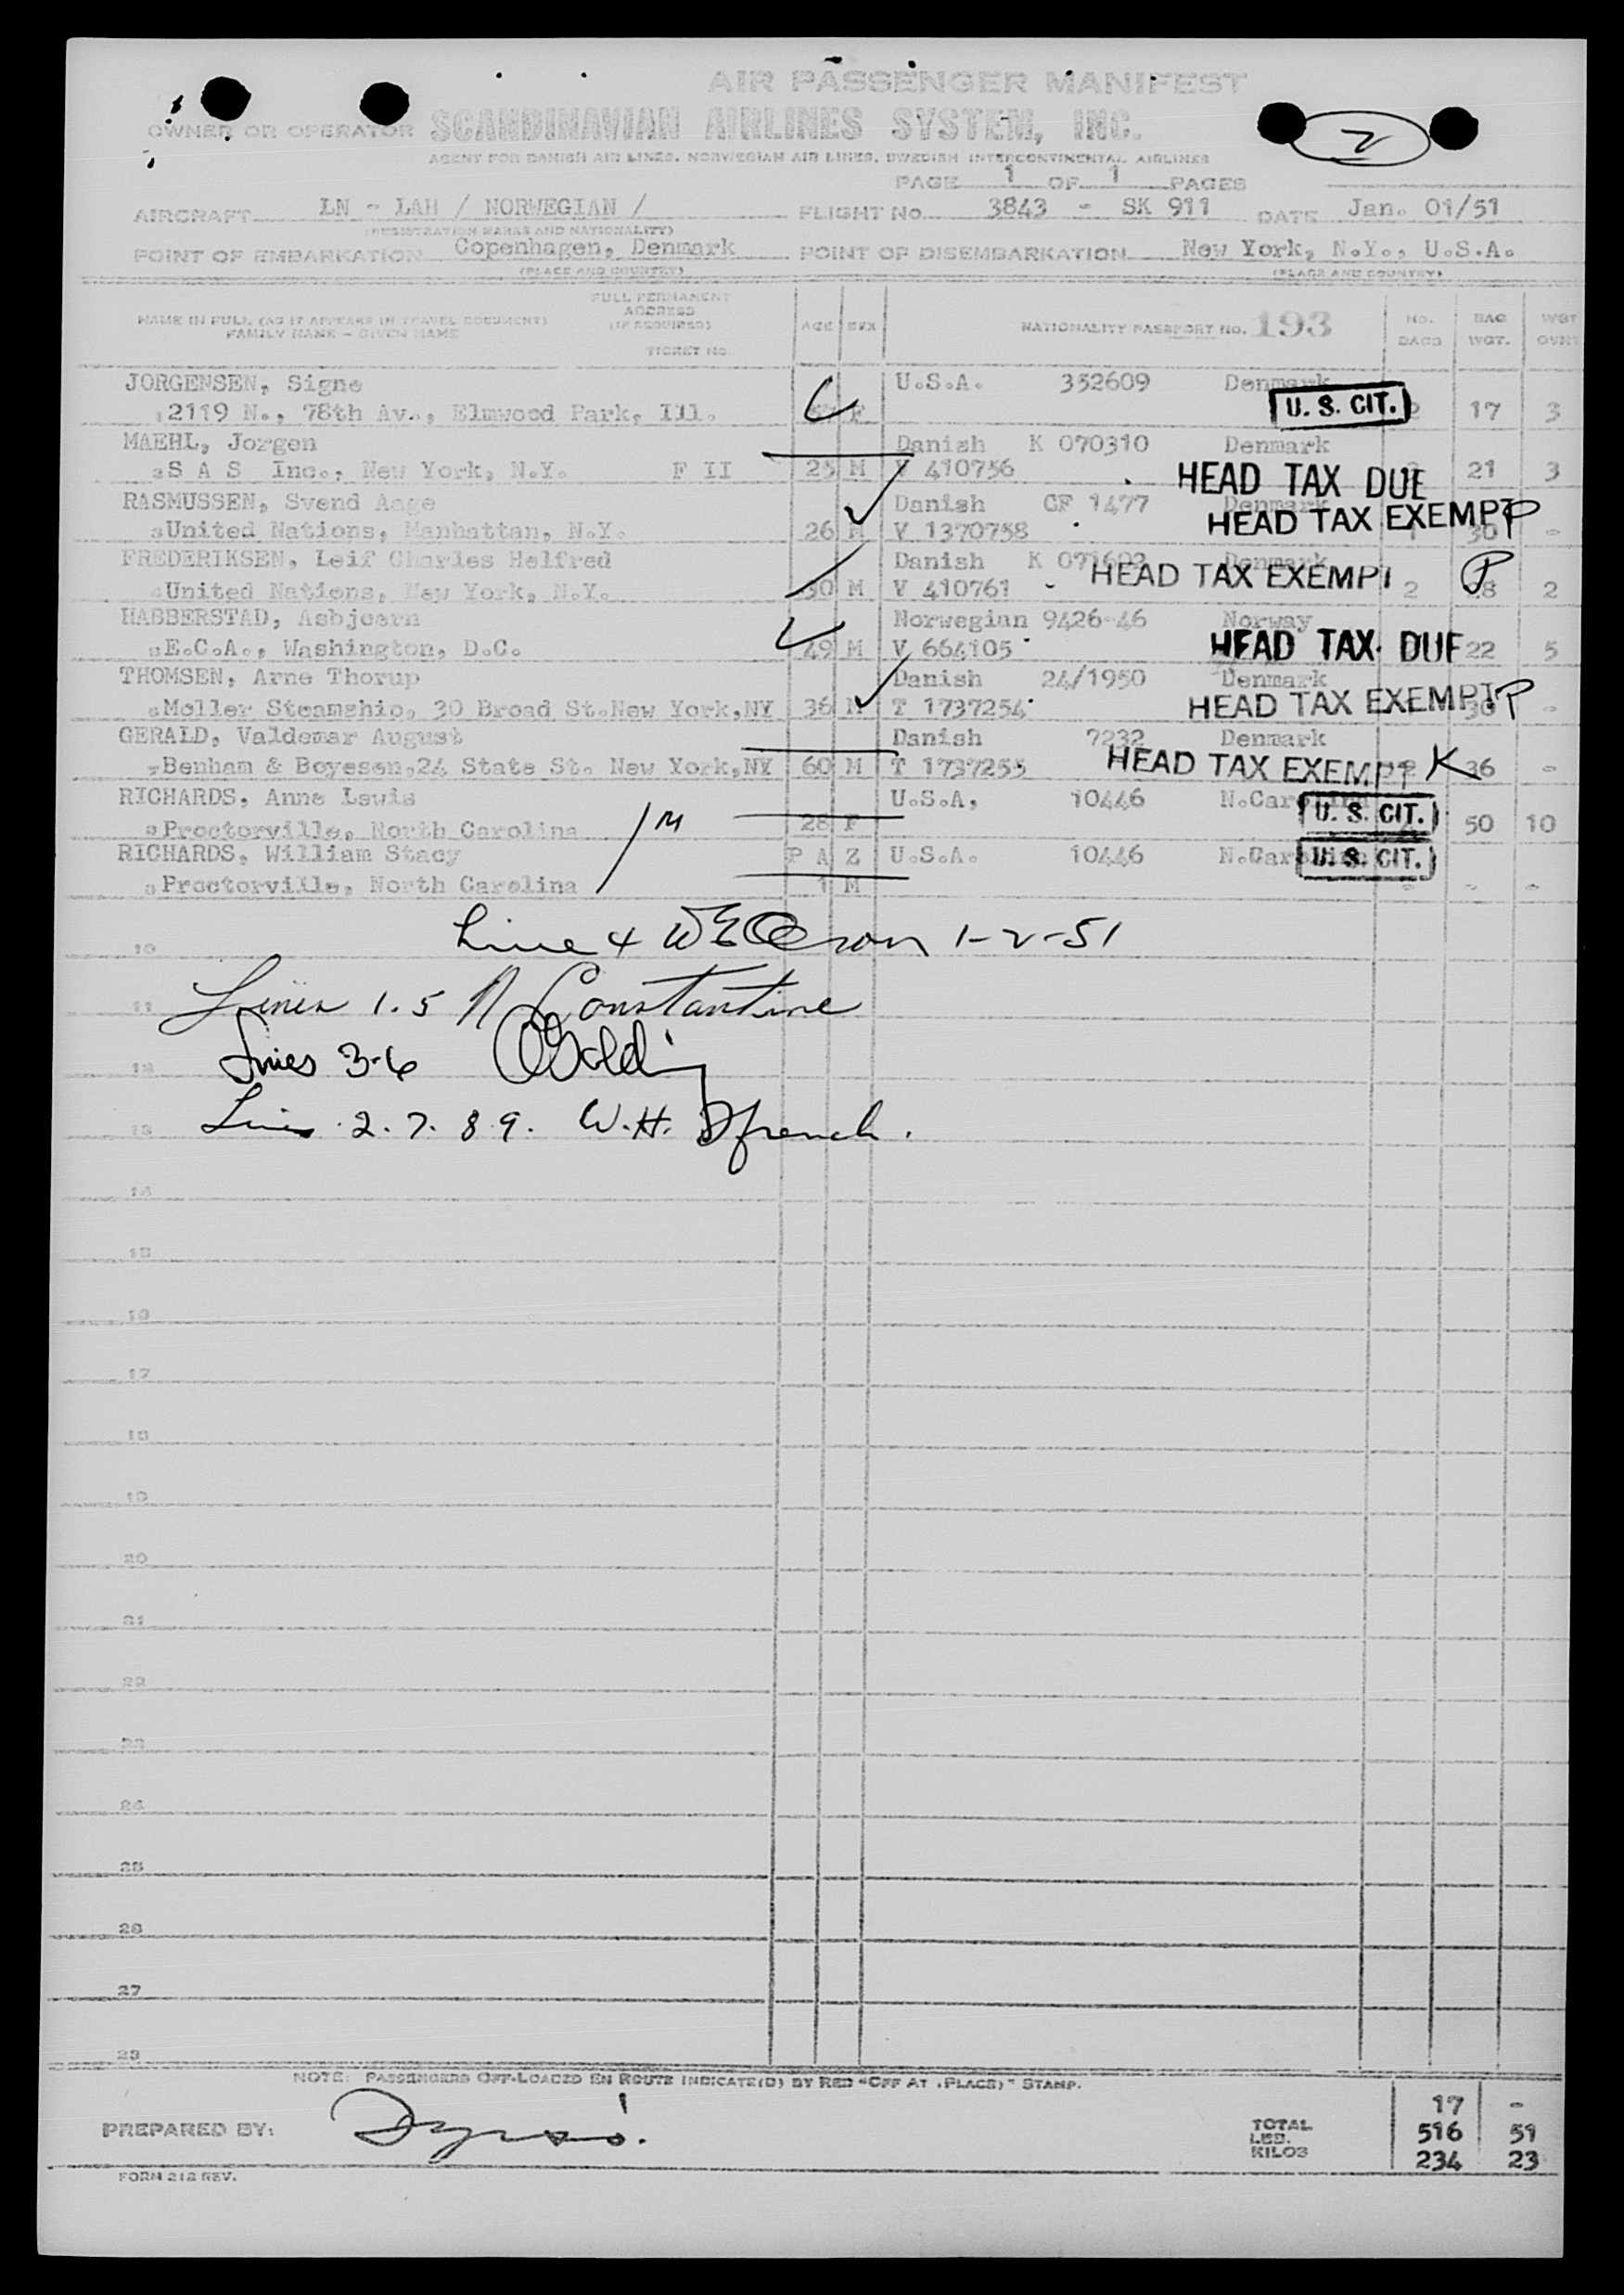 AIR PASSENGER MANIFEST
OWNER OR OPERATOR SCANDINAVIAN AIRLINES SYSTEM, INC.
2
AGENT FOR DANISH AIR LINES, NORWEGIAN AIR LINES, SWEDISH INTERCONTINENTAL AIRLINES
PAGE 1 OF 1 PAGES
AIRCRAFT LN - LAH / NORWEGIAN / FLIGHT No. 3843 - SK 911 DATE Jan. 01/51
(REGISTRATION MARKS AND NATIONALITY)
POINT OF EMBARKATION Copenhagen, Denmark POINT OF DISEMBARKATION New York, N.Y., U.S.A.
(PLACE AND COUNTRY) (PLACE AND COUNTRY)
NAME IN FULL (AS IT APPEARS IN TRAVEL DOCUMENT) FAMILY NAME - GIVEN NAME FULL PERMANENT ADDRESS (IF REQUIRED) TICKET NO. AGE SEX NATIONALITY PASSPORT NO. 193 NO. BAGS BAG WGT. WGT OVRT
JORGENSEN, Signe U.S.A. 352609 Denmark
2119 N., 78th Av., Elmwood Park, Ill. F U. S. CIT. 2 17 3
MAEHL, Jorgen Danish K 070310 Denmark
S A S Inc., New York, N.Y. F II 25 M V 410756 HEAD TAX DUE 21 3
RASMUSSEN, Svend Aage Danish GF 1477 Denmark
United Nations, Manhattan, N.Y. 26 M V 1370758 HEAD TAX EXEMPT P 30 -
FREDERIKSEN, Leif Charles Helfred Danish K 071602 Denmark
United Nations, New York, N.Y. 30 M V 410761 HEAD TAX EXEMPT 2 P 2
HABBERSTAD, Asbjoern Norwegian 9426-46 Norway
E.C.A., Washington, D.C. 49 M V 664105 HEAD TAX DUE 22 5
THOMSEN, Arne Thorup Danish 24/1950 Denmark
Moller Steamship, 30 Broad St.New York,NY 36 M T 1737254 HEAD TAX EXEMPT P 30 -
GERALD, Valdemar August Danish 7232 Denmark
Benham & Boyesen,24 State St. New York,NY 60 M T 1737255 HEAD TAX EXEMPT K 36 -
RICHARDS, Anne Lewis U.S.A, 10446 N.Carolina
Proctorville, North Carolina /M 28 F U. S. CIT. 50 10
RICHARDS, William Stacy P A Z U.S.A. 10446 N.Carolina U. S. CIT.
Proctorville, North Carolina 1 M - - -
10 Line 4 1-2-51
11 Lines 1.5 N Constantine
12 Lines 3-6
13 Lines 2. 7. 8 9. W.H.
14
15
16
17
18
19
20
21
22
23
24
25
26
27
28
NOTE: PASSENGERS OFF-LOADED EN ROUTE INDICATE(D) BY RED "OFF AT (PLACE)" STAMP.
17 -
PREPARED BY: TOTAL LBS. 516 51
KILOS 234 23
FORM 212 REV.